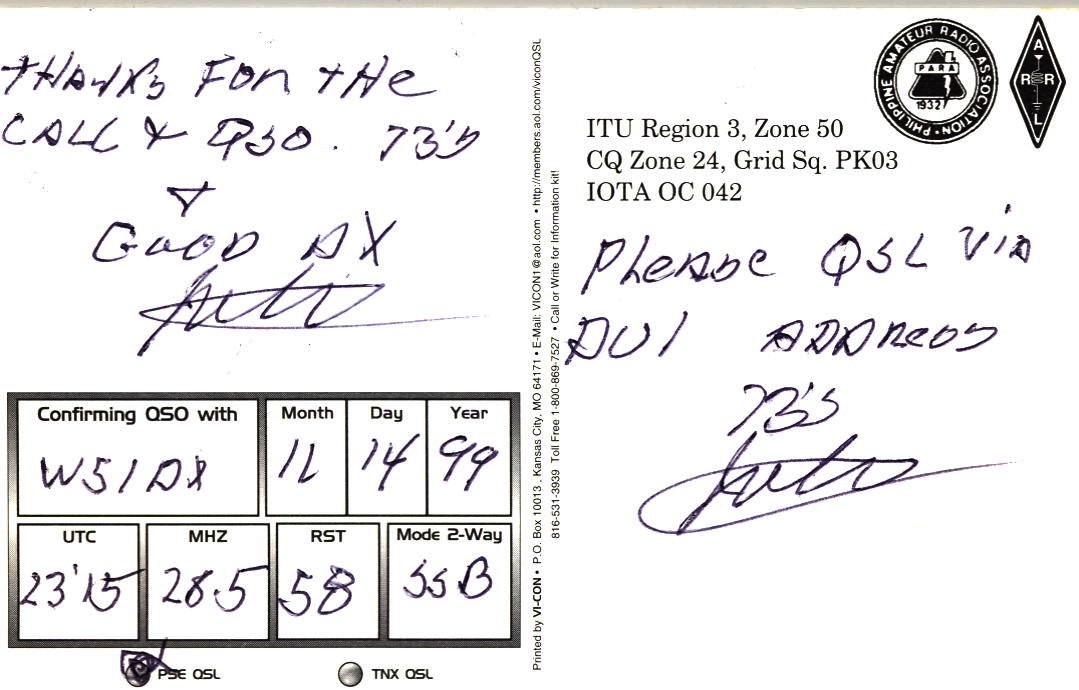 THANKS FOR THE
CALL & QSO. 73'S
&
GOOD DX
Confirming QSO with
W5IDX
Month
Day
14
Year
99
UTC
23'15
MHZ
28.5
RST
58
Mode 2-Way
SSB
PSE QSL
TNX QSL
Printed by VI-CON • P.O. Box 10013 . Kansas City, MO 64171 • E-Mail: VICON1@aol.com • http://members.aol.com/viconQSL
816-531-3939 Toll Free 1-800-869-7527 • Call or Write for Information kit!
PHILIPPINE AMATEUR RADIO ASSOCIATION
PARA
1932
A
R R
L
ITU Region 3, Zone 50
CQ Zone 24, Grid Sq. PK03
IOTA OC 042
Please QSL via
DU1 ADDRESS
73's